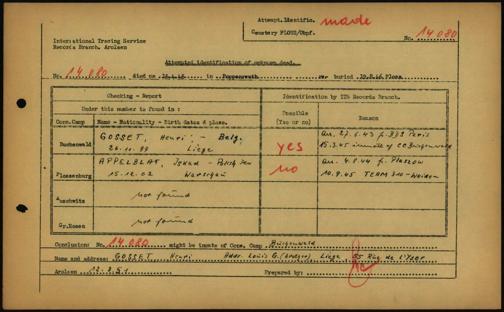 Attempt.Identific. made
Cemetery FLOSS/Obpf. No. 14.080
International Tracing Service
Records Branch. Arolsen
Attempted identification of unknown dead.
No. 14.080 died on in Poppenreuth buried 10.8.46 Floss.
Checking - Report
Identification by ITS Records Branch.
Under this number is found in:
Possible (Yes or no)
Reason
Conc.Camp
Name - Nationality - Birth dates & place.
Buchenwald
GOSSET, Henri, - Belg.
20.11.99 Liege
yes
arr. 27.6.43 f. Paris
15.3.45 inmate of CC Buchenwald
Flossenburg
APPELBLAT, - Polish Jew
15.12.02 Warschau
no
arr. 4.8.44 f. Plaszow
10.9.45 TEAM 310 - Weiden
Auschwitz
not found
Gr.Rosen
not found
Conclusion: No. 14 080 might be inmate of Conc. Camp
Name and address: GOSSET Henri Louis G. Liege, 55 Rue de
Arolsen 12.3.51 Prepared by: